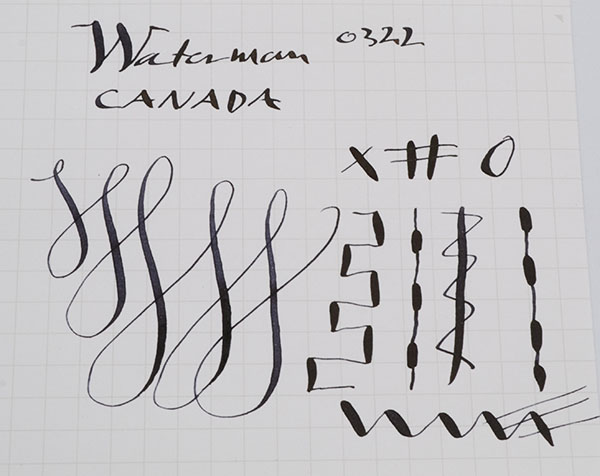 Waterman 0322
CANADA
X # 0